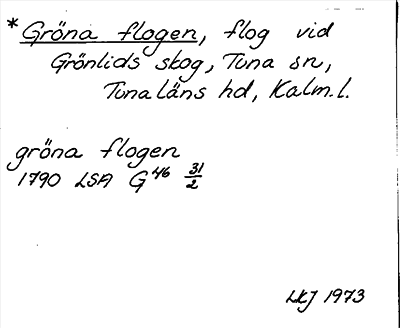 *Gröna flogen, flog vid
Grönlids skog, Tuna sn,
Tunaläns hd, Kalm. l.
gröna flogen
1790 LSA G46 31/2
LKJ 1973